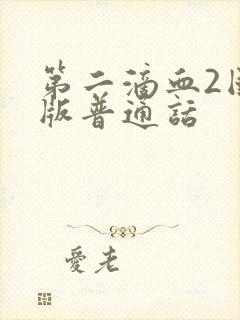 第二滴血2国
版普通話
愛老